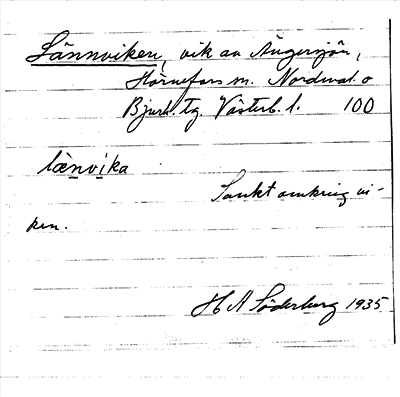 Lännviken, vik av Ängersjön,
Hörnefors sn. Nordmal. o
Bjurh. tg. Västerb. l. 100
læ̀nvìka
Sankt omkring vi-
ken.
H A Söderberg 1935